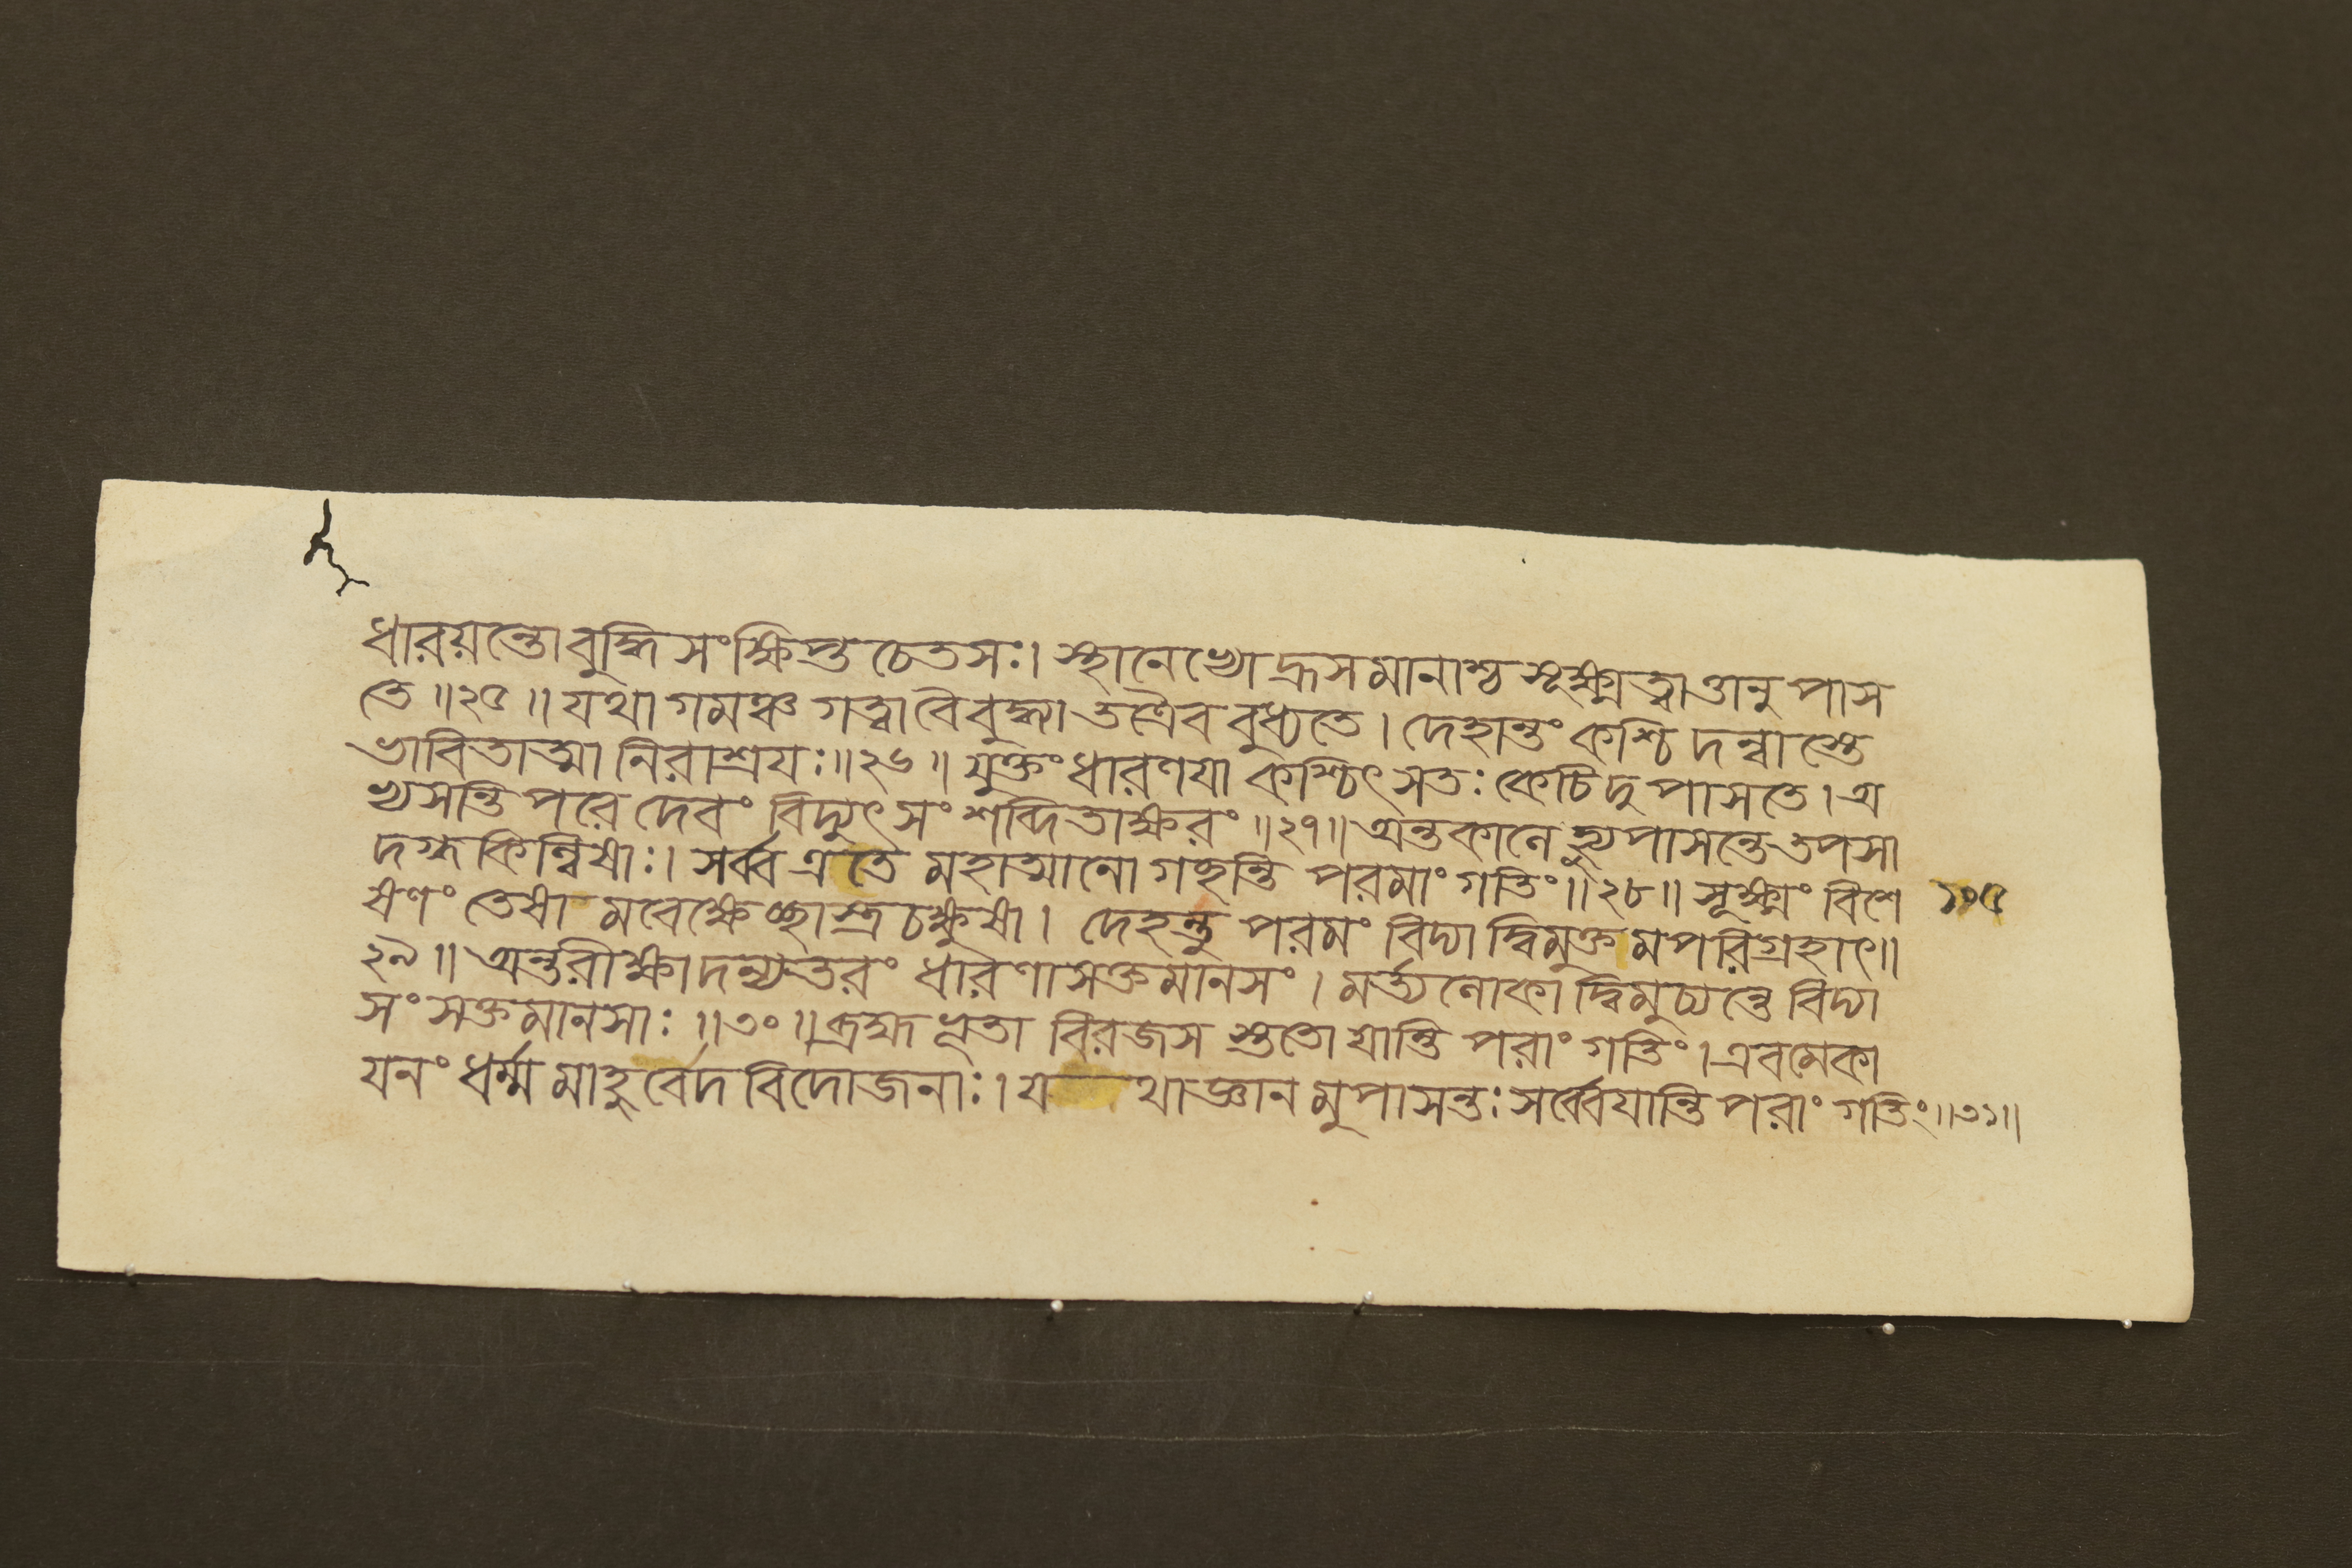 ধারয়ন্তো বুদ্ধি সংক্ষিপ্ত চেতসঃ। স্থানেখো দ্রূসমানাশ্চ সূক্ষ্মত্বাত্তানুপাস
তে ॥২৫॥ যথাগমঞ্চ গত্বা বৈ বুদ্ধ্যা তত্রৈব বুধ্যতে। দেহান্তং কশ্চিদন্বাস্তে
ভাবিতাত্মা নিরাশ্রযঃ॥২৬॥ যুক্তং ধারণযা কশ্চিৎ সতঃ কেচিদুপাসতে। অ
ভ্যসন্তি পরে দেবং বিদ্যুৎ সংশব্দিতাক্ষরং ॥২৭॥ অন্তকালে হ্যুপাসন্তে তপসা
দগ্ধকিল্বিষাঃ। সর্ব্ব এতে মহাত্মানো গচ্ছন্তি পরমাং গতিং॥২৮॥ সূক্ষ্মং বিশে ১০৫
ষণং তেষা মবেক্ষেচ্ছাস্ত্রচক্ষুষা। দেহন্তু পরমং বিদ্যা দ্বিমুক্তমপরিগ্রহাৎ॥
২৯॥ অন্তরীক্ষাদন্যতরং ধারণাসক্তমানসং। মর্ত্যলোকা দ্বিমুচ্যন্তে বিদ্যা
সংসক্তমানসাঃ ॥৩০॥ ব্রহ্মভূতা বিরজস স্ততো যান্তি পরাং গতিং। এবমেকা
যনং ধর্ম্মমাহুর্বেদবিদোজনাঃ। য থাজ্ঞানমুপাসন্তঃ সর্ব্বেযান্তি পরাং গতিং॥৩১॥